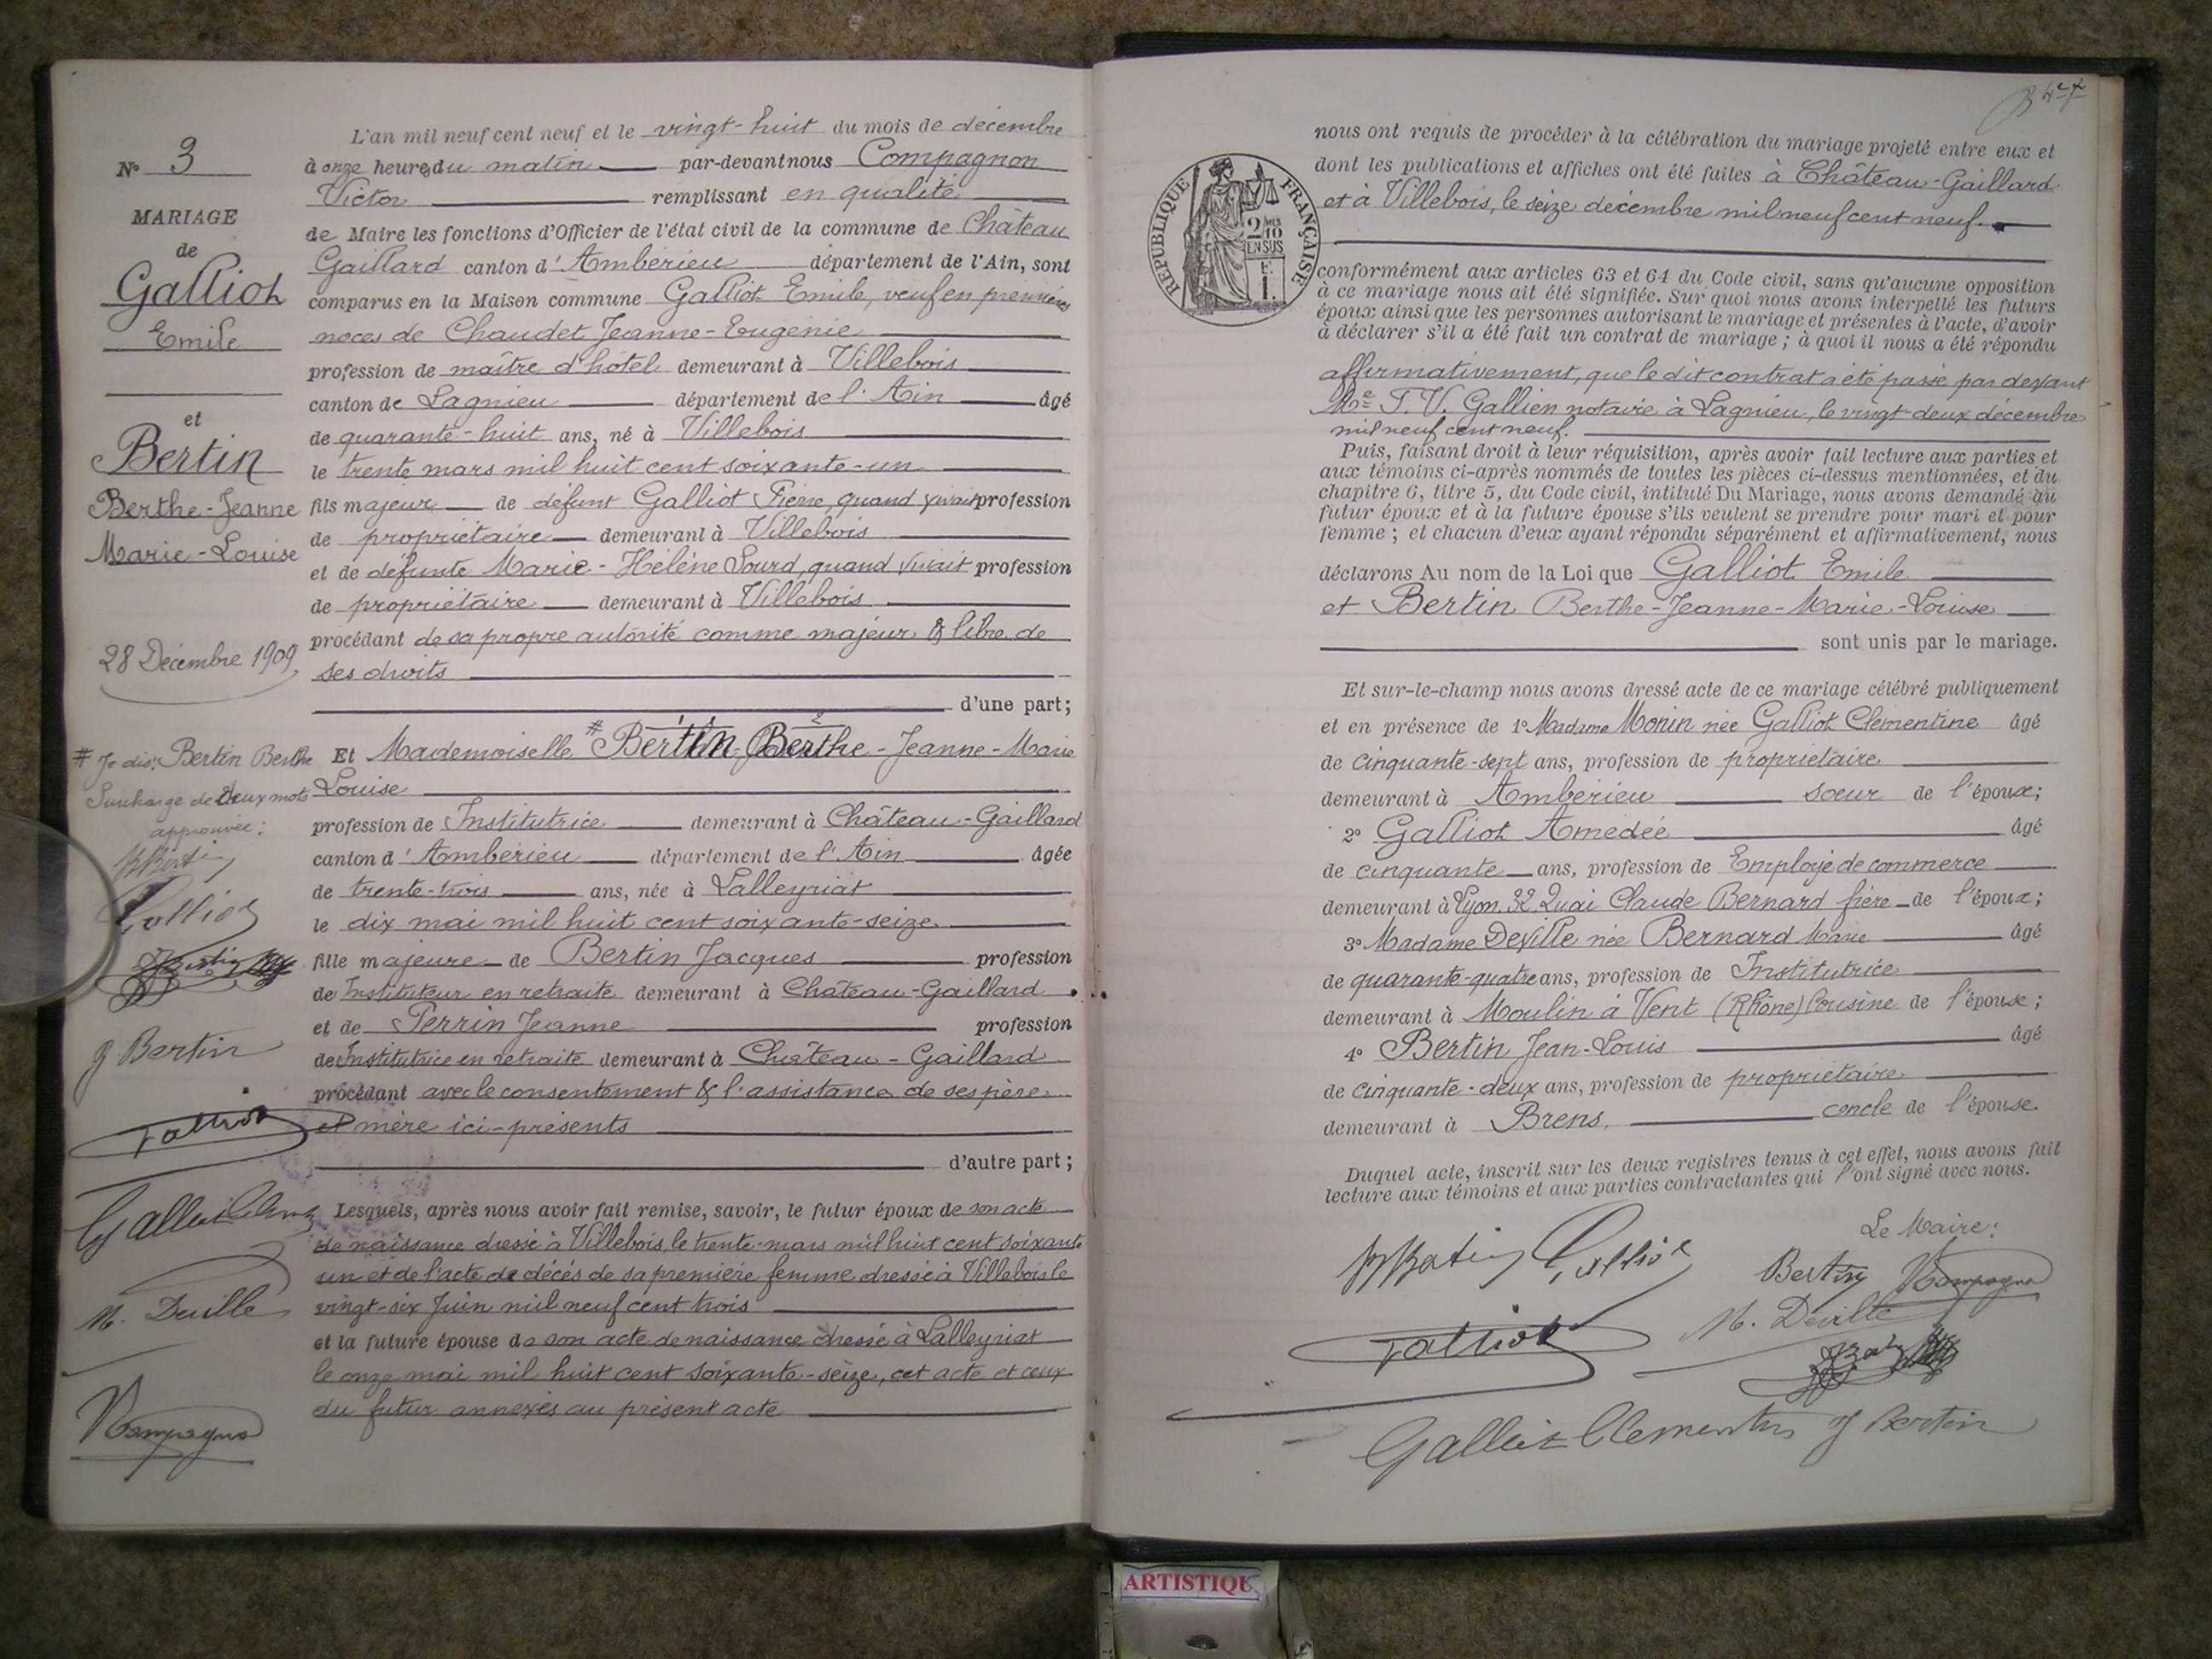 N° 3
MARIAGE
de
Galliot
Emile
et
Bertin
Berthe-Jeanne
Marie-Louise
28 Décembre 1909
# Je dis: Bertin Berthe
Surcharge de deux mots
approuvée:
Galliot
J Bertin
Galliot
M. Deville
L'an mil neuf cent neuf et le vingt-huit du mois de décembre
à onze heures du matin par-devant nous Compagnon
Victor remplissant en qualité
de Maire les fonctions d'Officier de l'état civil de la commune de Château
Gaillard canton d'Ambérieu département de l'Ain, sont
comparus en la Maison commune Galliot Emile, veuf en premières
noces de Chaudet Jeanne-Eugénie
profession de maître d'hôtel demeurant à Villebois
canton de Lagnieu département de l'Ain âgé
de quarante-huit ans, né à Villebois
le trente mars mil huit cent soixante-un
fils majeur de défunt Galliot Pierre, quand vivait profession
de propriétaire demeurant à Villebois
et de défunte Marie-Hélène Lourd, quand vivait profession
de propriétaire demeurant à Villebois
procédant de sa propre autorité comme majeur & libre de
ses droits
d'une part;
Et Mademoiselle # Bertin Berthe-Jeanne-Marie
Louise
profession de Institutrice demeurant à Château-Gaillard
canton d'Ambérieu département de l'Ain âgée
de trente-trois ans, née à Lalleyriat
le dix mai mil huit cent soixante-seize
fille majeure de Bertin Jacques profession
de Instituteur en retraite demeurant à Château-Gaillard
et de Perrin Jeanne profession
de Institutrice en retraite demeurant à Château-Gaillard
procédant avec le consentement & l'assistance de ses père
et mère ici-présents
d'autre part;
Lesquels, après nous avoir fait remise, savoir, le futur époux de son acte
de naissance dressé à Villebois, le trente-mars mil huit cent soixante
un et de l'acte de décès de sa première femme dressé à Villebois le
vingt-six Juin mil neuf cent trois
et la future épouse de son acte de naissance dressé à Lalleyriat
le onze mai mil huit cent soixante-seize, cet acte et ceux
du futur annexés au présent acte
RÉPUBLIQUE FRANÇAISE
2/10
EN SUS
nous ont requis de procéder à la célébration du mariage projeté entre eux et
dont les publications et affiches ont été faites à Château-Gaillard
et à Villebois, le seize décembre mil neuf cent neuf.
conformément aux articles 63 et 64 du Code civil, sans qu'aucune opposition
à ce mariage nous ait été signifiée. Sur quoi nous avons interpellé les futurs
époux ainsi que les personnes autorisant le mariage et présentes à l'acte, d'avoir
à déclarer s'il a été fait un contrat de mariage; à quoi il nous a été répondu
affirmativement, que le dit contrat a été passé par devant
Me T. V. Gallien notaire à Lagnieu, le vingt-deux décembre
mil neuf cent neuf.
Puis, faisant droit à leur réquisition, après avoir fait lecture aux parties et
aux témoins ci-après nommés de toutes les pièces ci-dessus mentionnées, et du
chapitre 6, titre 5, du Code civil, intitulé Du Mariage, nous avons demandé au
futur époux et à la future épouse s'ils veulent se prendre pour mari et pour
femme; et chacun d'eux ayant répondu séparément et affirmativement, nous
déclarons Au nom de la Loi que Galliot Emile
et Bertin Berthe-Jeanne-Marie-Louise
sont unis par le mariage.
Et sur-le-champ nous avons dressé acte de ce mariage célébré publiquement
et en présence de 1° Madame Monin née Galliot Clémentine âgé
de cinquante-sept ans, profession de propriétaire
demeurant à Ambérieu soeur de l'époux;
2° Galliot Amédée âgé
de cinquante ans, profession de Employé de commerce
demeurant à Lyon, 32 Quai Claude Bernard frère de l'époux;
3° Madame Deville née Bernard Marie âgé
de quarante-quatre ans, profession de Institutrice
demeurant à Moulin à Vent (Rhône) Cousine de l'épouse;
4° Bertin Jean-Louis âgé
de cinquante-deux ans, profession de propriétaire
demeurant à Brens, oncle de l'épouse
Duquel acte, inscrit sur les deux registres tenus à cet effet, nous avons fait
lecture aux témoins et aux parties contractantes qui l'ont signé avec nous.
Le Maire:
Galliot
Bertin
Galliot
M. Deville
J Bertin
ARTISTIQU